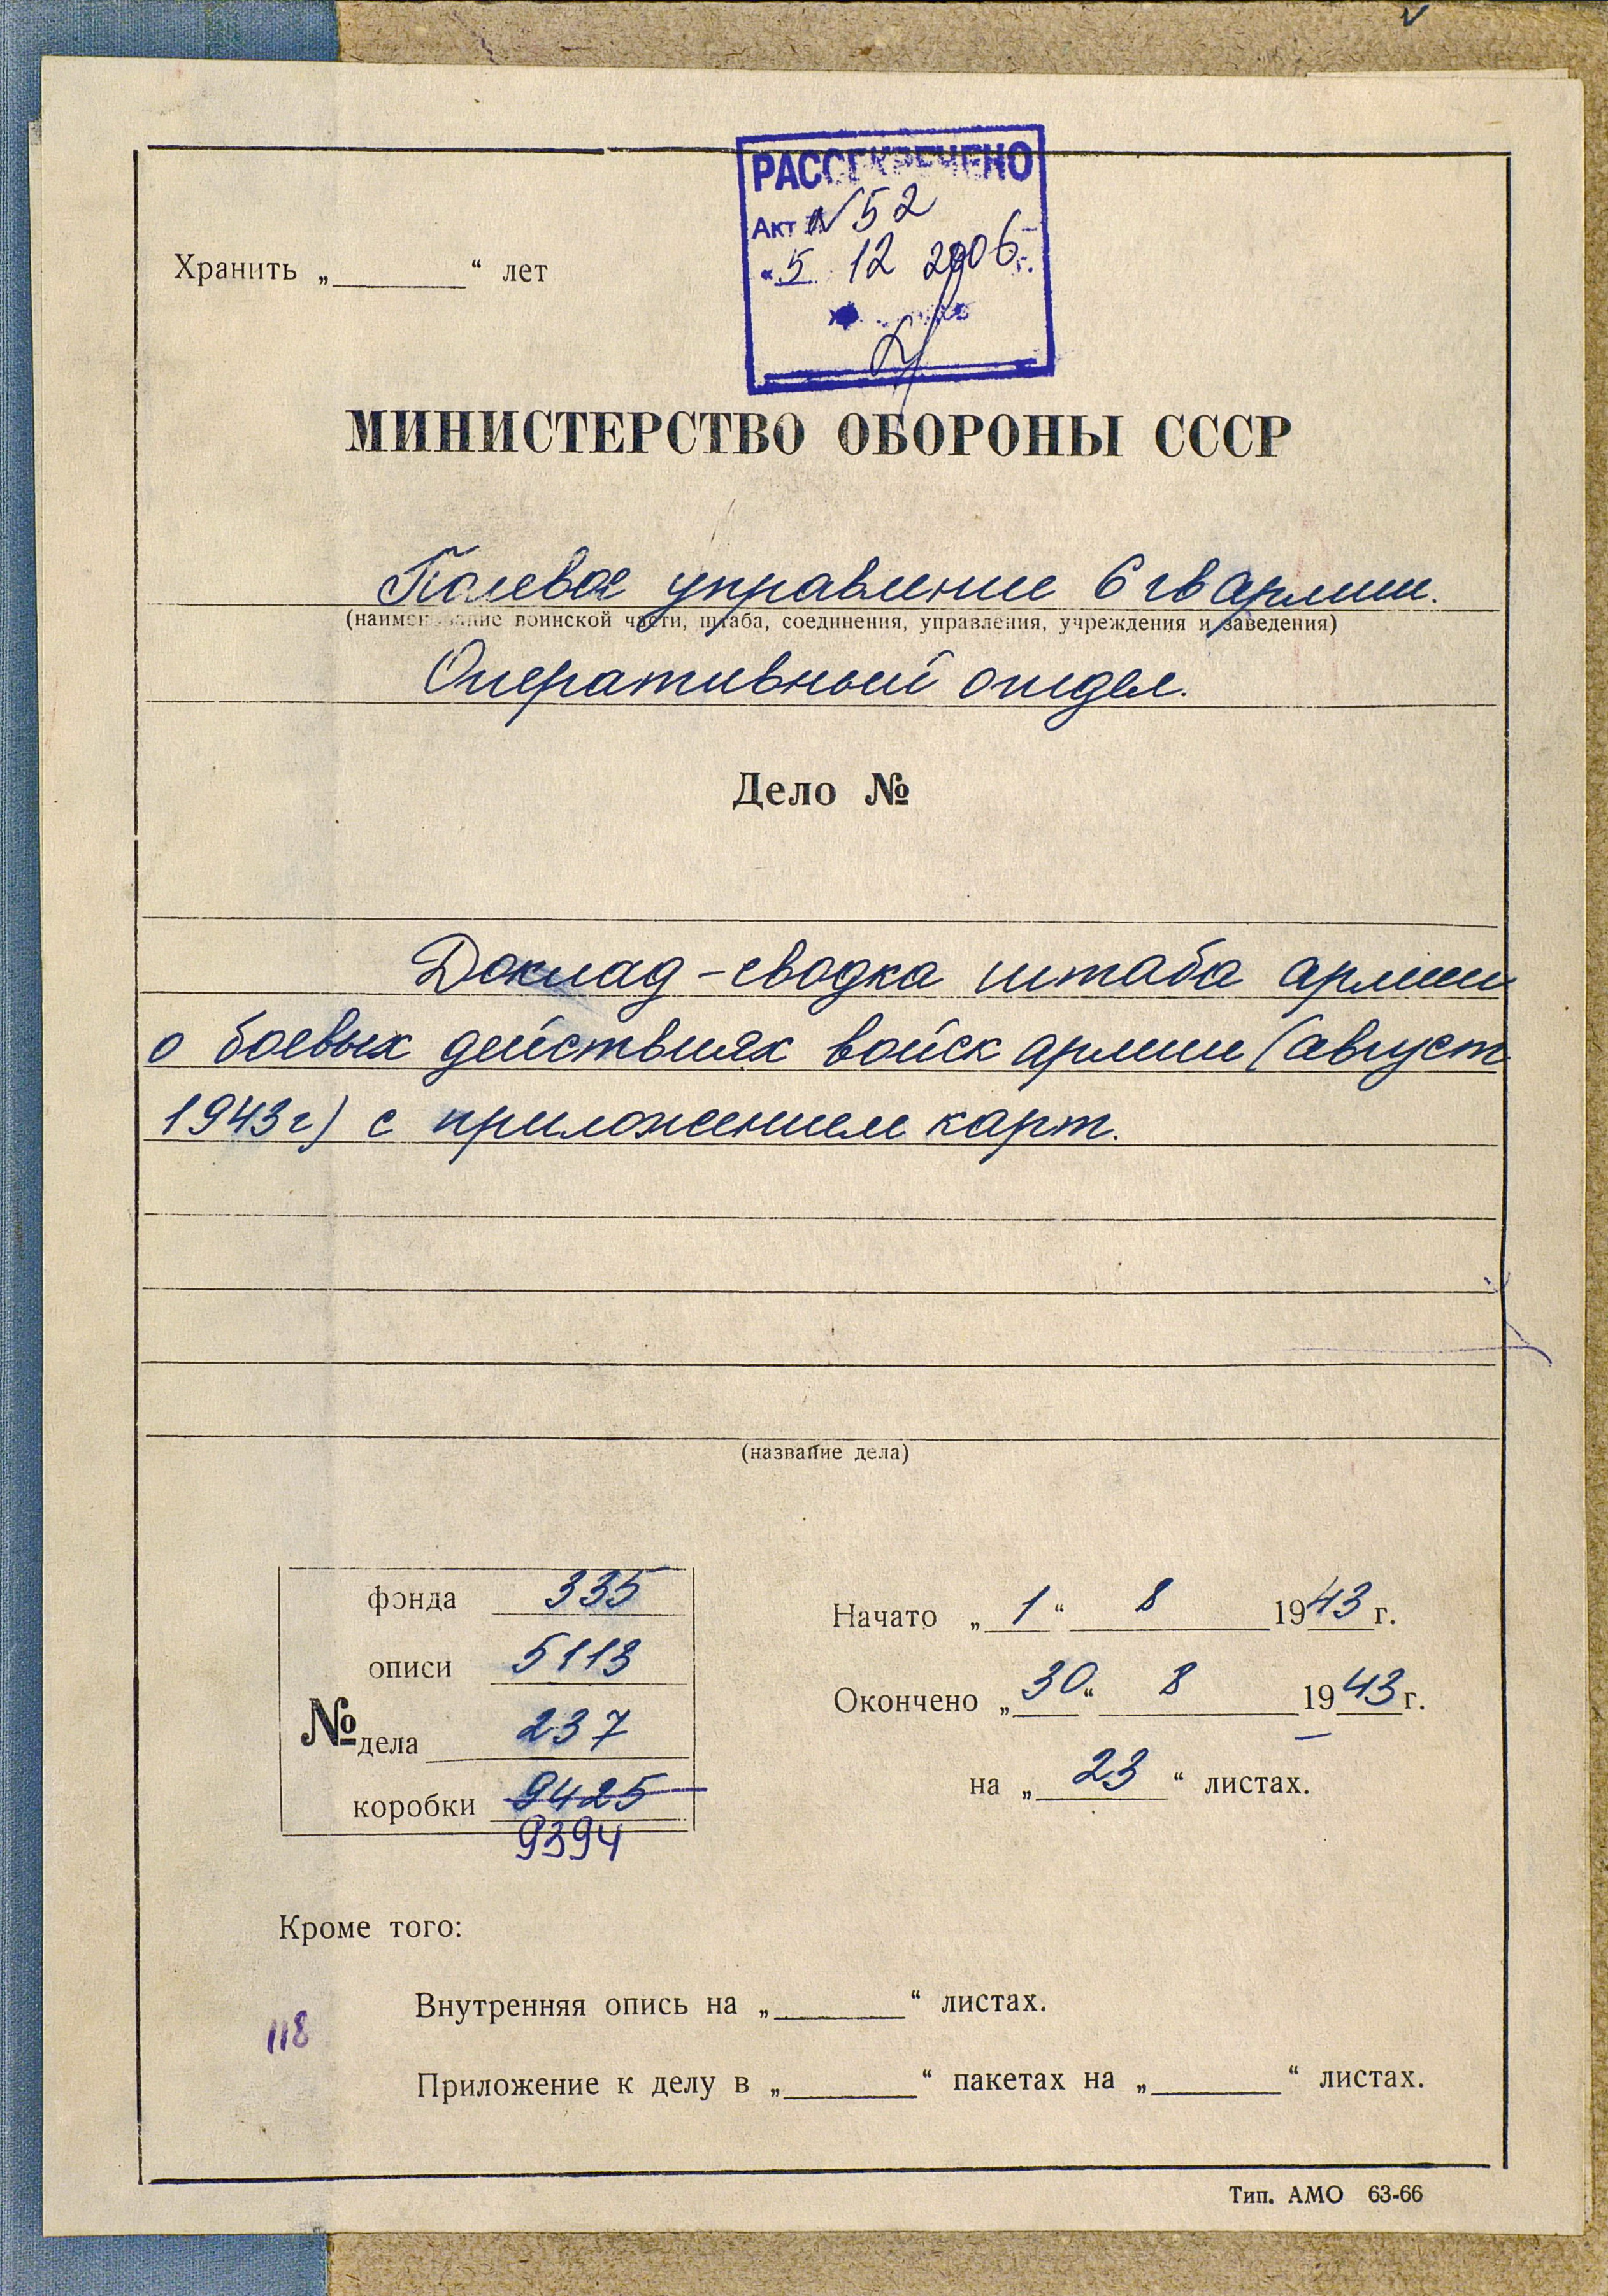 РАССЕКРЕЧЕНО
Акт № 52
"5" 12 2006 г.
Хранить „ “ лет
МИНИСТЕРСТВО ОБОРОНЫ СССР
Полевое управление 6 гв армии.
(наименование воинской части, штаба, соединения, управления, учреждения и заведения)
Оперативный отдел.
Дело №
Доклад-сводка штаба армии
о боевых действиях войск армии (август
1943 г) с приложением карт.
(название дела)
фонда 335
описи 5113
№ дела 237
коробки 9425
9394
Начато „1“ 8 1943 г.
Окончено „30“ 8 1943 г.
на „23“ листах.
Кроме того:
Внутренняя опись на „ “ листах.
118
Приложение к делу в „ “ пакетах на „ “ листах.
Тип. АМО 63-66